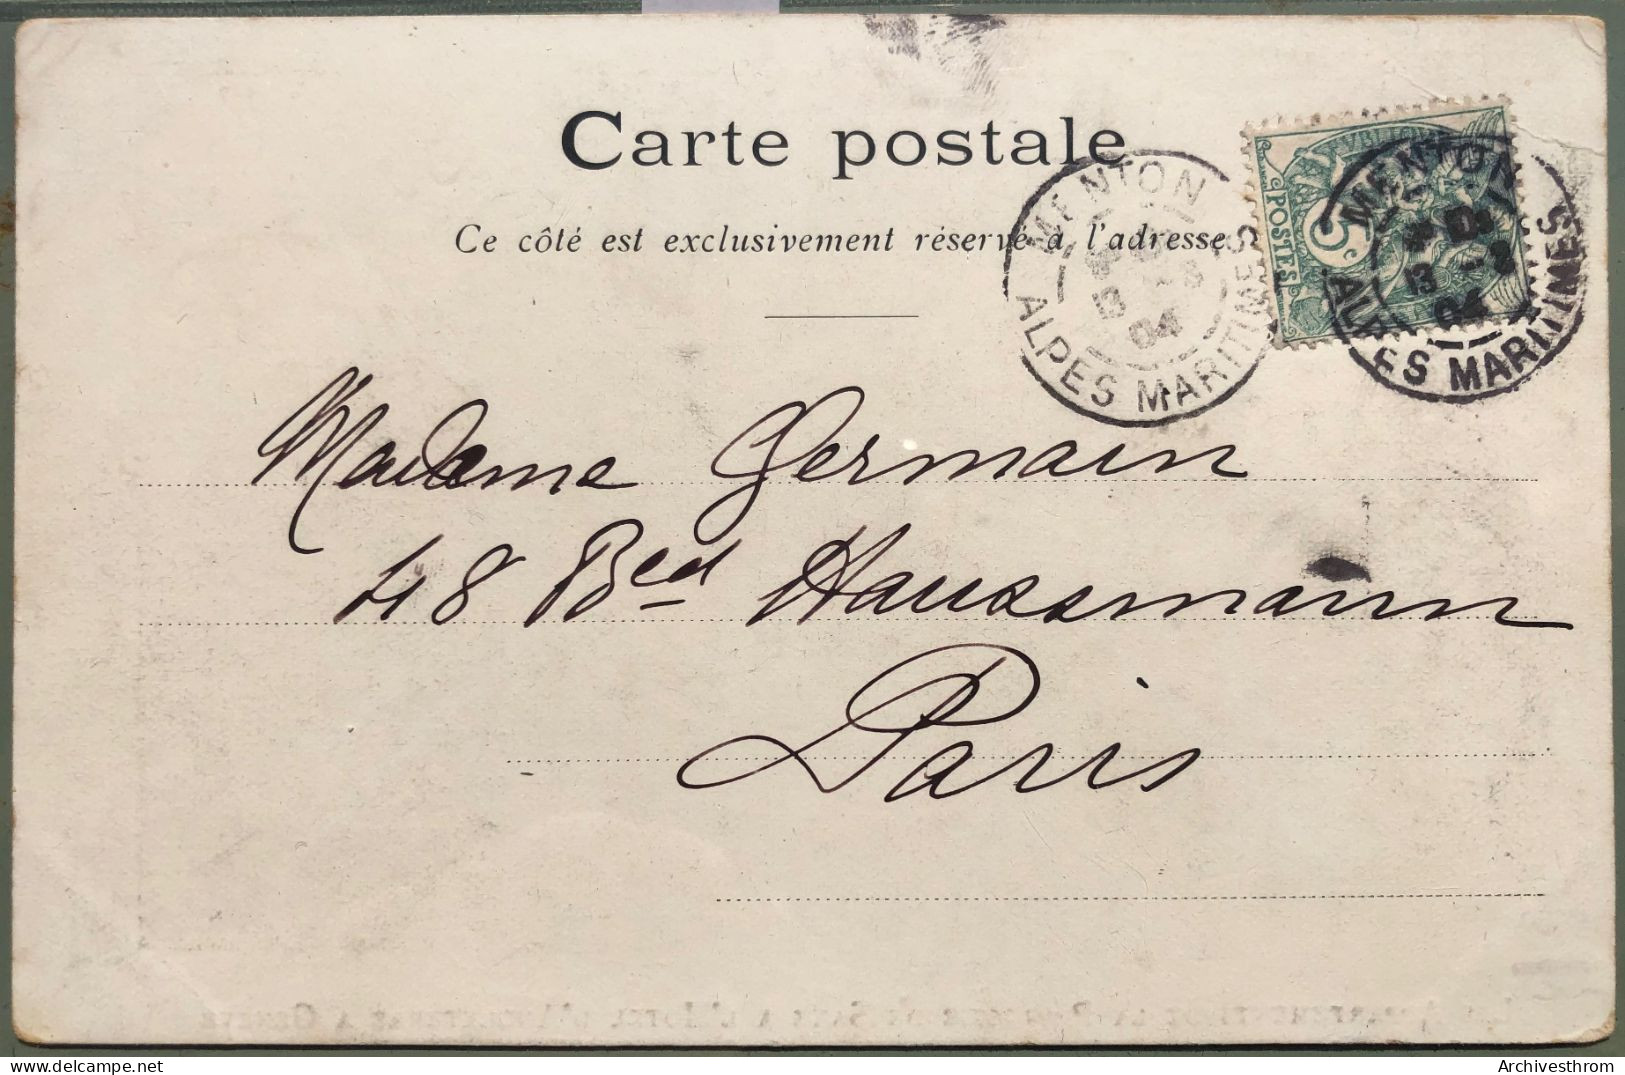 Carte postale
Ce côté est exclusivement réservé à l'adresse
MENTON
13 -3
04
ALPES MARITIMES
POSTES
5 c
MENTON
13 -3
04
ALPES MARITIMES
Madame Germain
48 Bed Haussmann
Paris
Archivesthrom